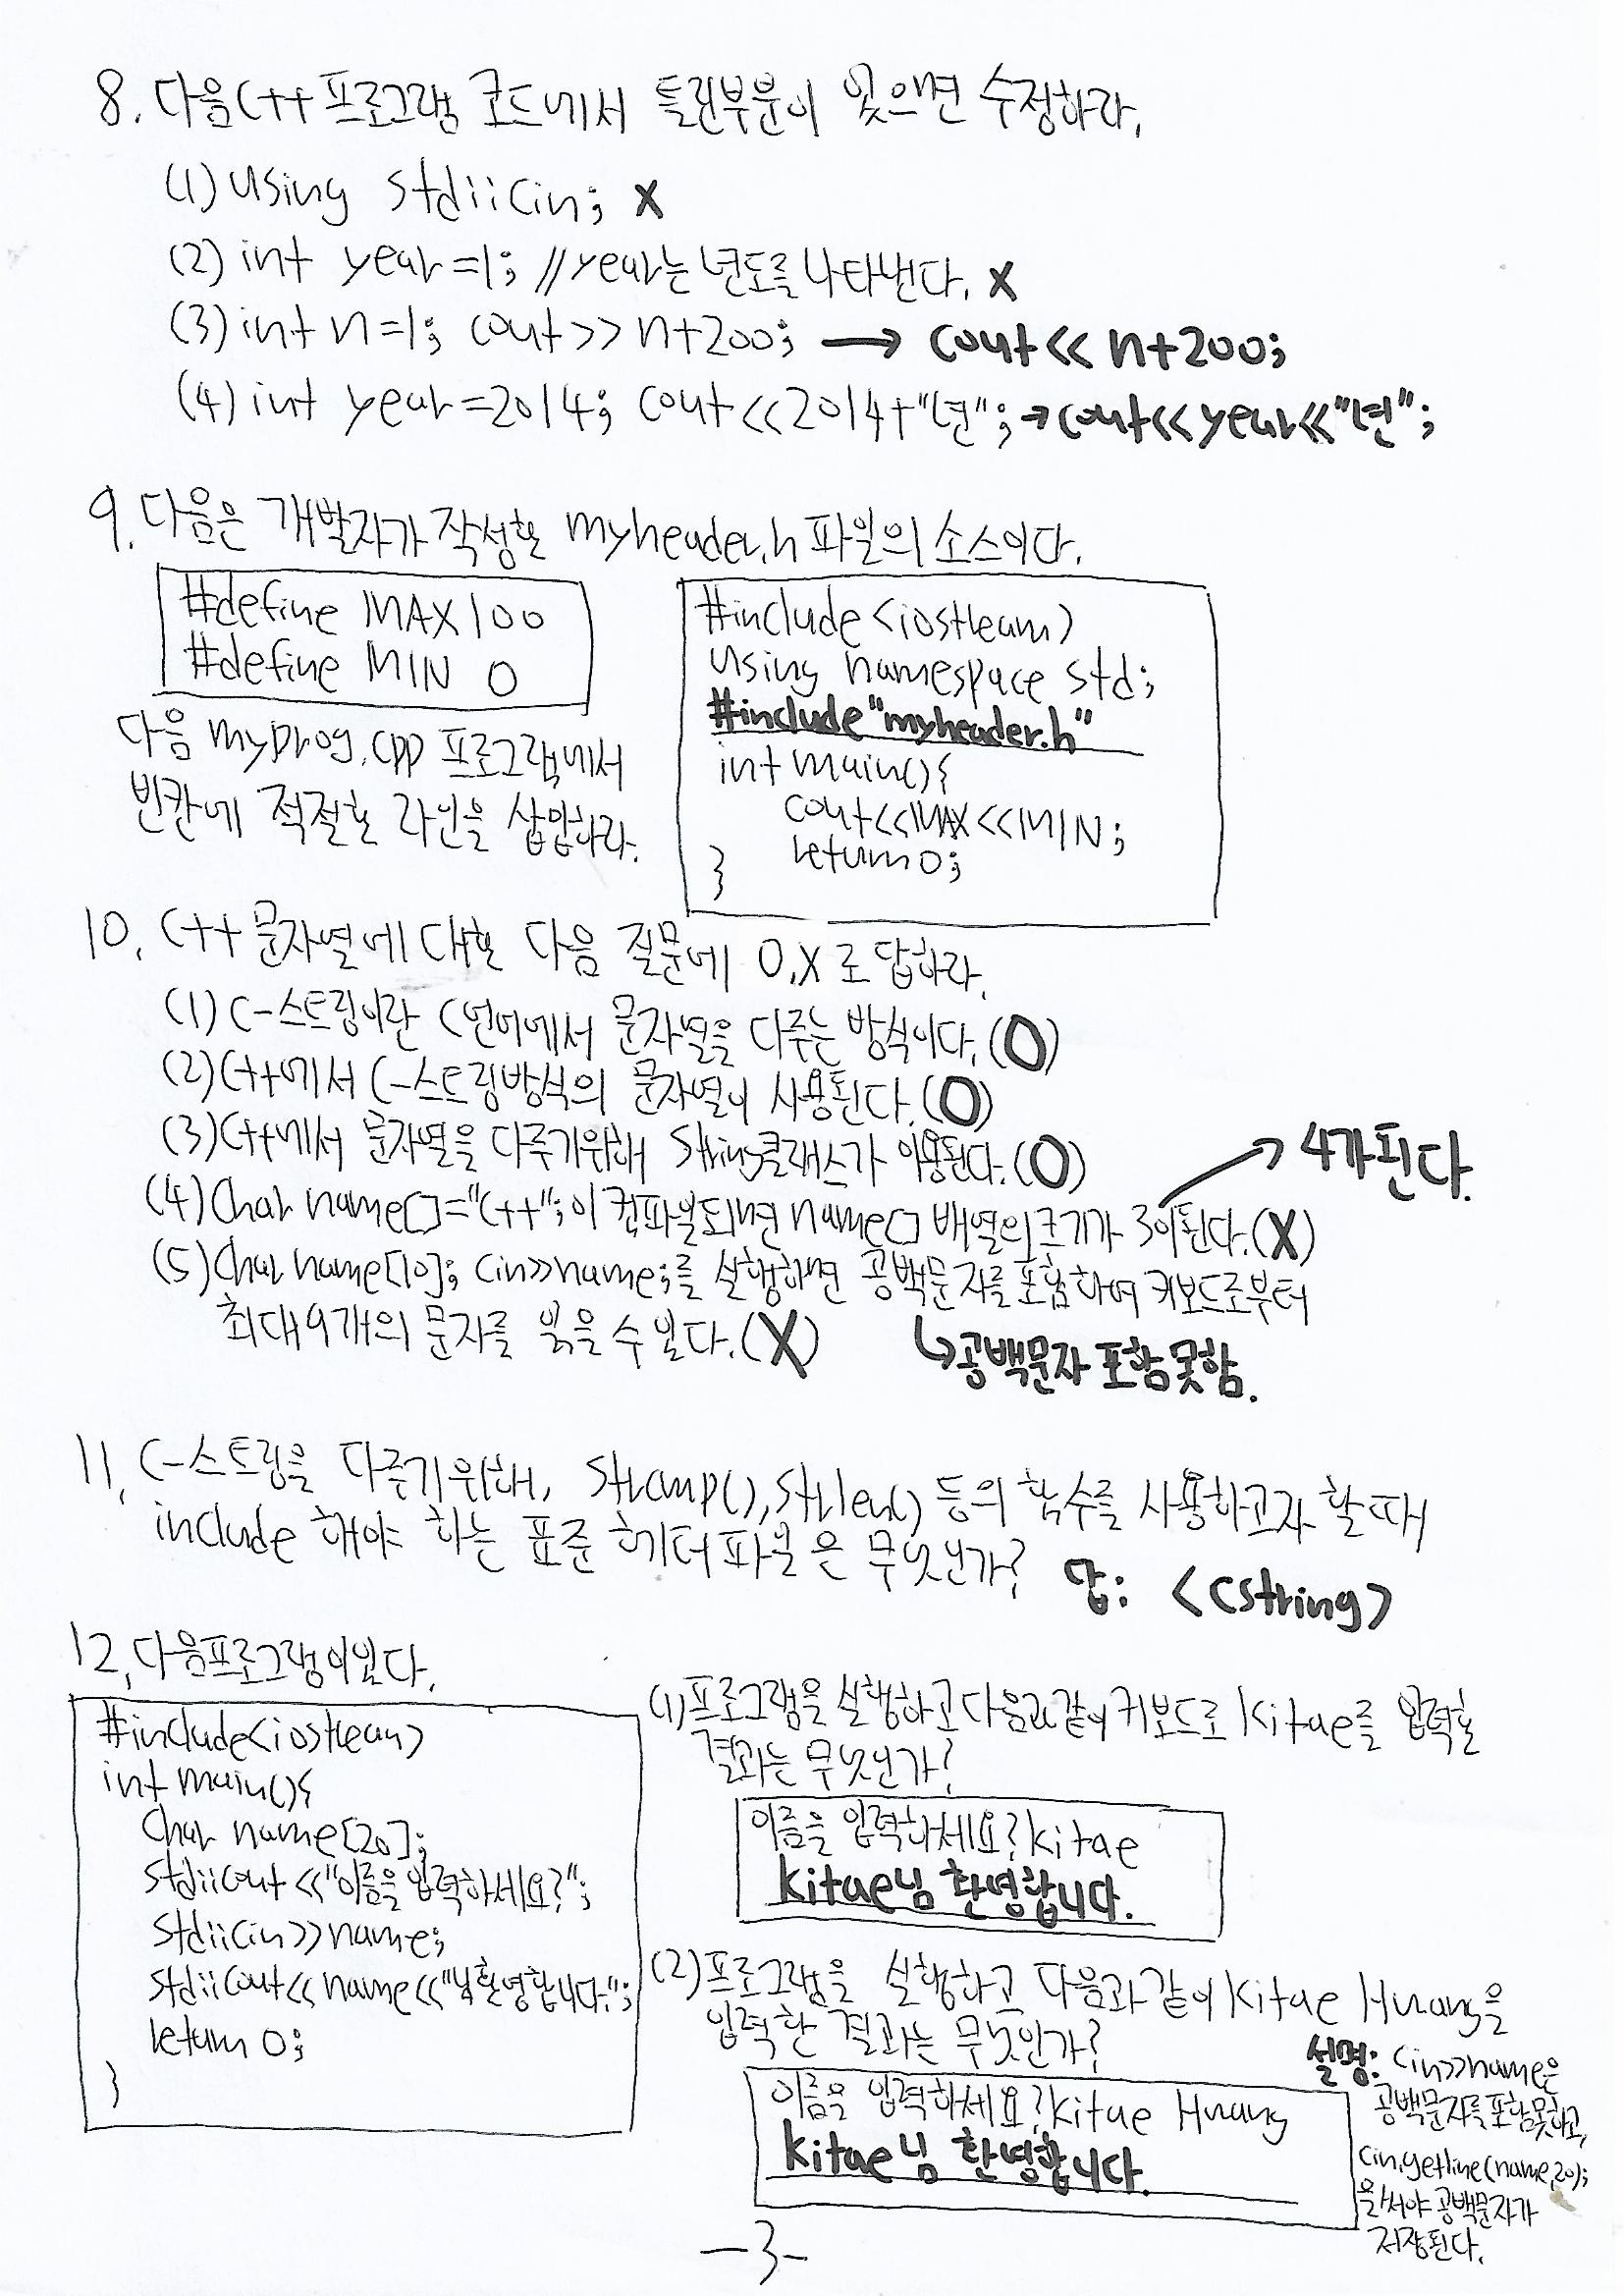 8. 다음 C++ 프로그램 코드에서 틀린부분이 있으면 수정하라.
(1) using std::cin; X
(2) int year=1; //year는 년도를 나타낸다. X
(3) int n=1; cout>>n+200; → cout<<n+200;
(4) int year=2014; cout<<2014+"년"; → cout<<year<<"년";
9. 다음은 개발자가 작성한 myheader.h 파일의 소스이다.
#define MAX 100
#define MIN 0
다음 myprog.cpp 프로그램에서
빈칸에 적절한 라인을 삽입하라.
#include<iostream>
using namespace std;
#include"myheader.h"
int main(){
cout<<MAX<<MIN;
return 0;
}
10. C++ 문자열에 대한 다음 질문에 O,X로 답하라.
(1) C-스트링이란 C언어에서 문자열을 다루는 방식이다.(O)
(2) C++에서 C-스트링방식의 문자열이 사용된다.(O)
(3) C++에서 문자열을 다루기위해 string클래스가 이용된다.(O)
→ 4가 된다.
(4) char name[]="C++"; 이 컴파일되면 name[] 배열의 크기가 3이된다.(X)
(5) char name[10]; cin>>name;를 실행하면 공백문자를 포함하여 키보드로부터
최대 9개의 문자를 읽을 수 있다.(X)
↳공백문자 포함못함.
11. C-스트링을 다루기위해, strcmp(),strlen() 등의 함수를 사용하고자 할때
include 해야 하는 표준 헤더파일은 무엇인가? 답: <cstring>
12. 다음프로그램이있다.
#include<iostream>
int main(){
char name[20];
std::cout<<"이름을 입력하세요?";
std::cin>>name;
std::cout<<name<<"님환영합니다.";
return 0;
}
(1) 프로그램을 실행하고 다음과 같이 키보드로 kitae를 입력한
결과는 무엇인가?
이름을 입력하세요?kitae
kitae님 환영합니다.
(2) 프로그램을 실행하고 다음과 같이 kitae Hwang을
입력한 결과는 무엇인가?
이름을 입력하세요?kitae Hwang
kitae님 환영합니다.
설명: cin>>name은
공백문자를 포함못하고,
cin.getline(name,20);
을 써야 공백문자가
저장된다.
-3-